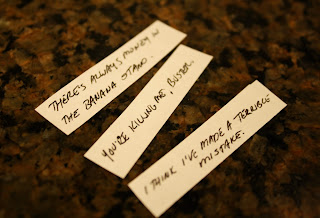 THERE'S ALWAYS MONEY IN
THE BANANA STAND.
YOU'RE KILLING ME, BUSTER.
I THINK I'VE MADE A TERRIBLE
MISTAKE.